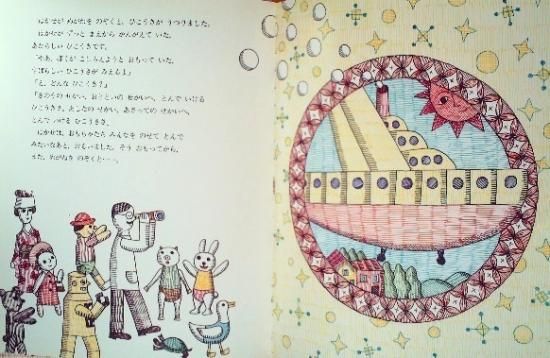 はかせが めがねを のぞくと、ひこうきが うつりました。
はかせが ずっと まえから かんがえて いた、
あたらしい ひこうきです。
「やあ、ぼくが こしらえようと おもって いた、
すばらしい ひこうきが みえるよ」
「え、どんな ひこうき?」
「きのうの せかい、おとといの せかいへ、とんで いける
ひこうきさ。あしたの せかい、あさっての せかいへ、
とんで いける ひこうきさ」
はかせは、おもちゃたち みんなを のせて とんで
みたいなあと、おもいました。そう おもってから、
また、めがねを のぞくと……。